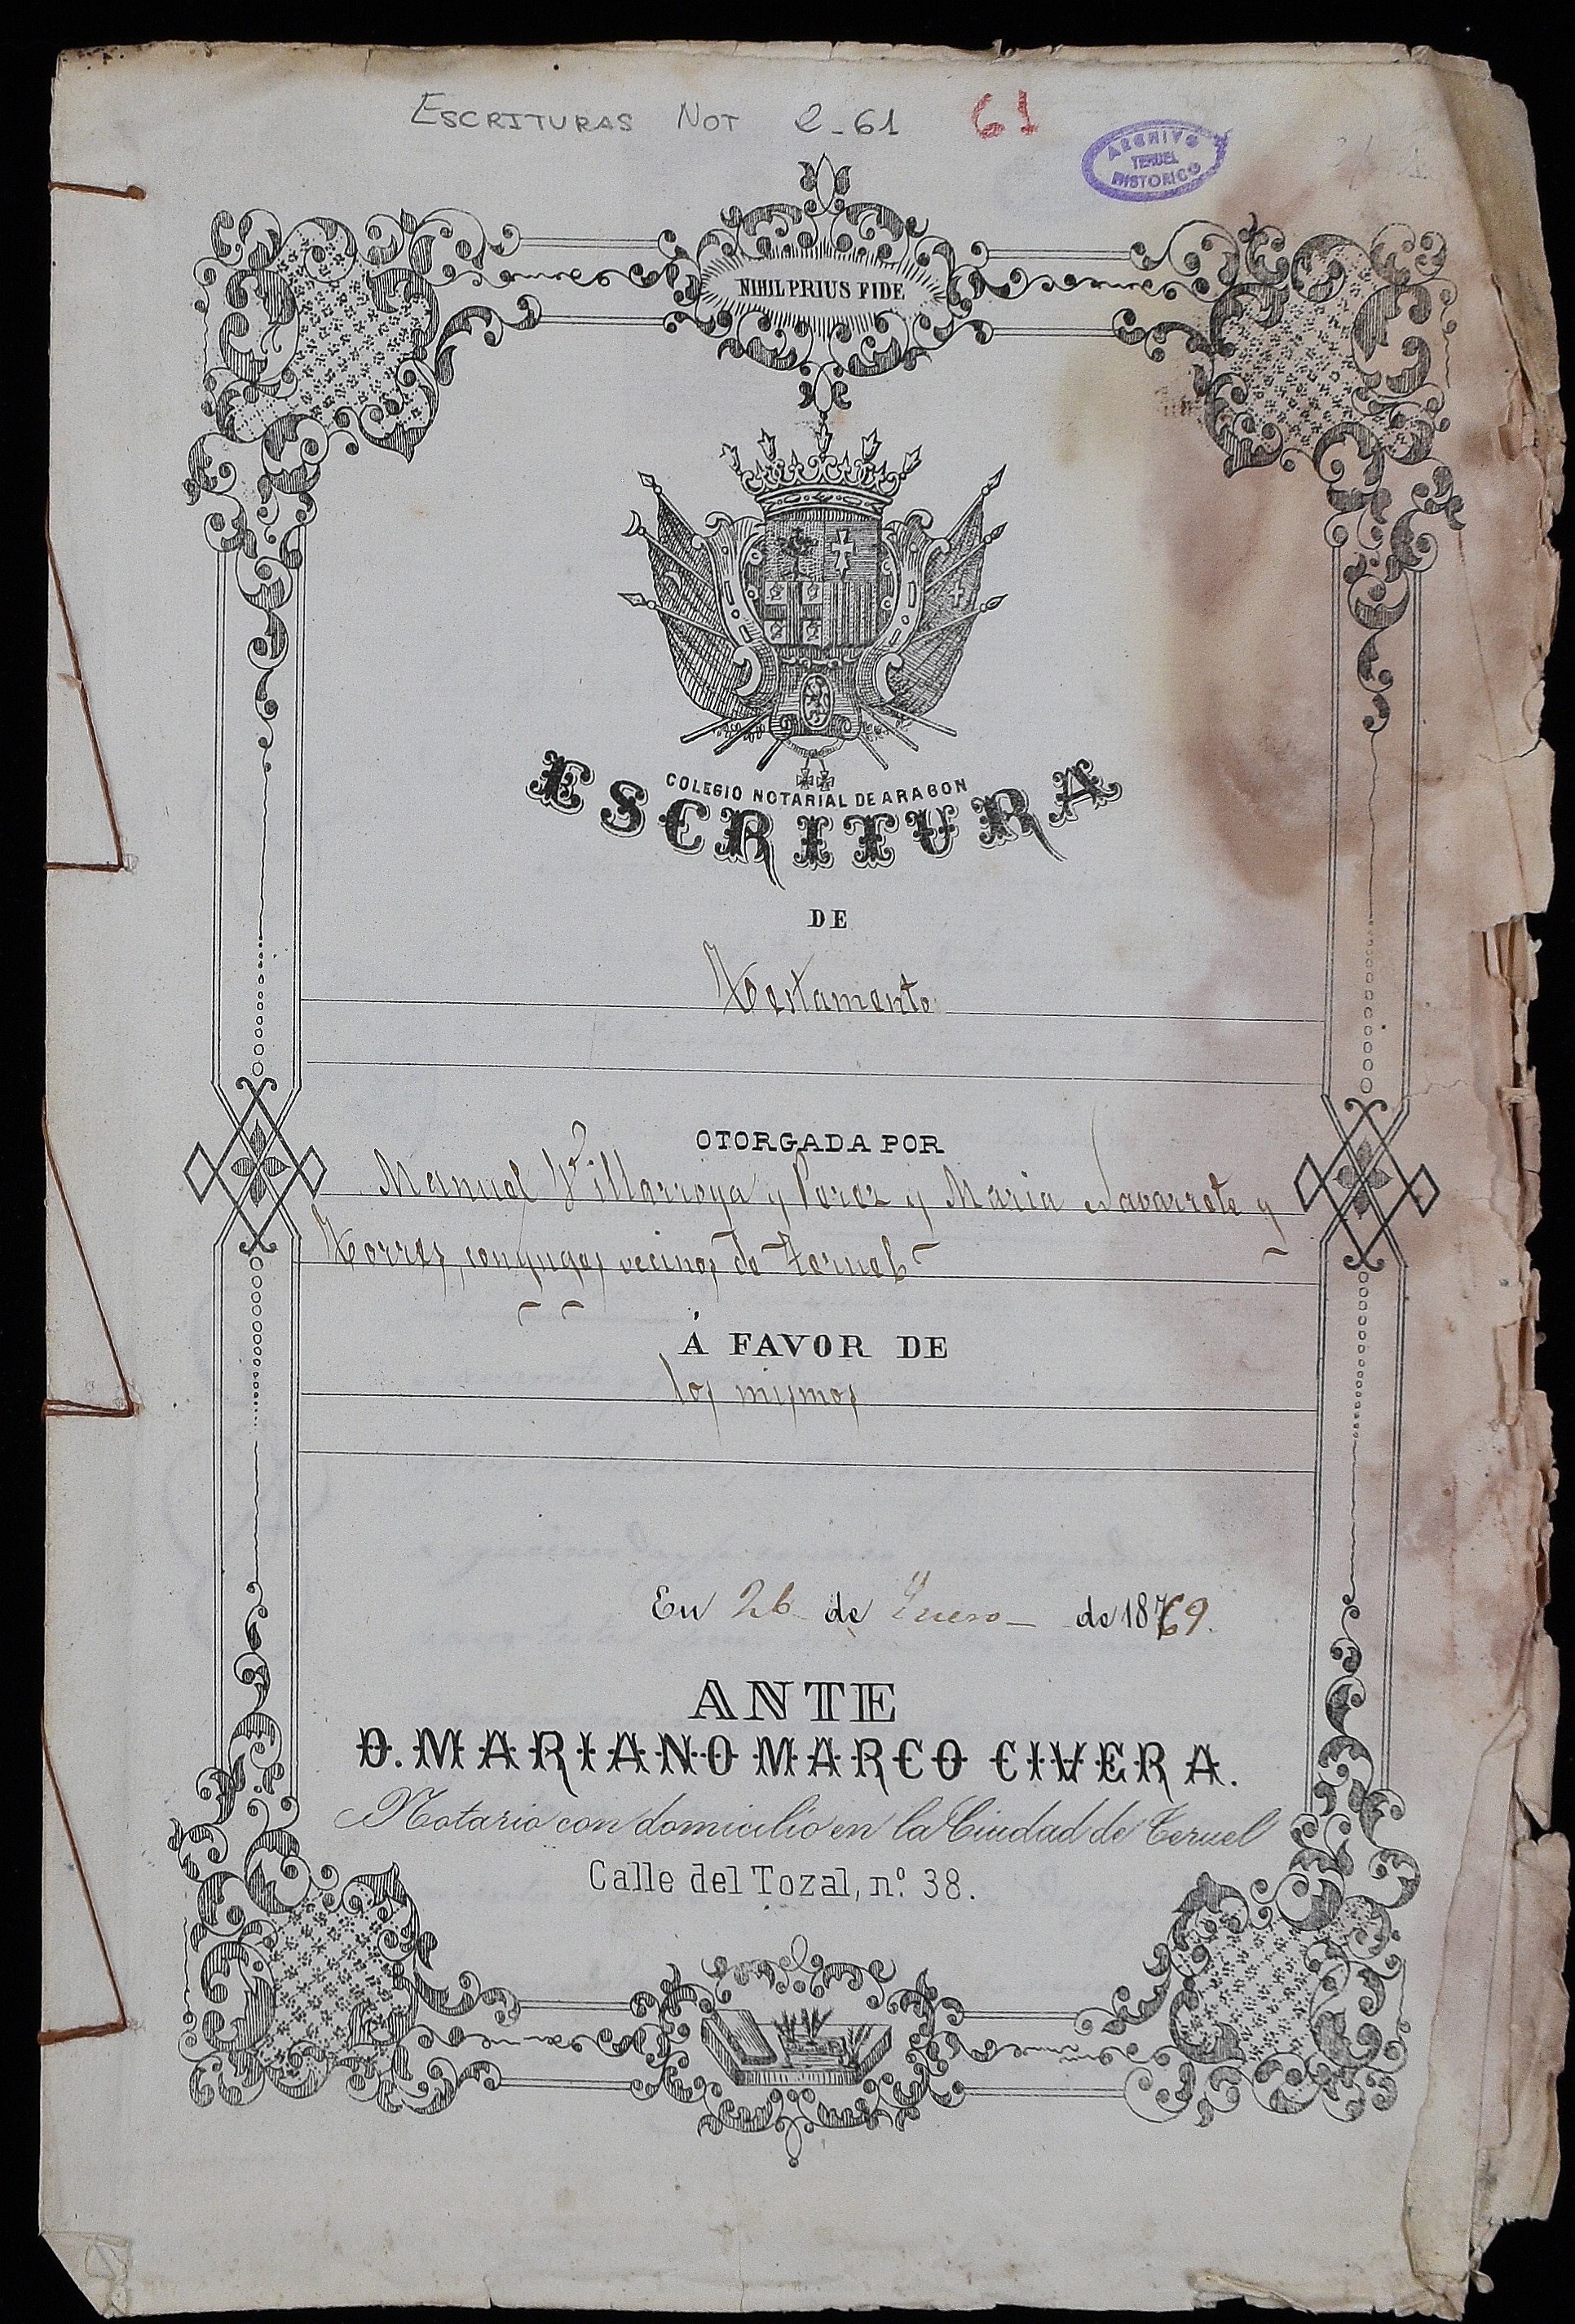 ESCRITURAS NOT C-61 61
ARCHIVO
TERUEL
HISTORICO
NIHIL PRIUS FIDE
COLEGIO NOTARIAL DE ARAGON
ESCRITURA
DE
Testamento
OTORGADA POR
Manuel Villarroya y Perez y Maria Navarrete y
Torres, conyuges vecinos de Teruel
Á FAVOR DE
los mismos
En 26 de Enero de 1869.
ANTE
D. MARIANO MARCO CIVERA.
Notario con domicilio en la Ciudad de Teruel
Calle del Tozal, n.º 38.